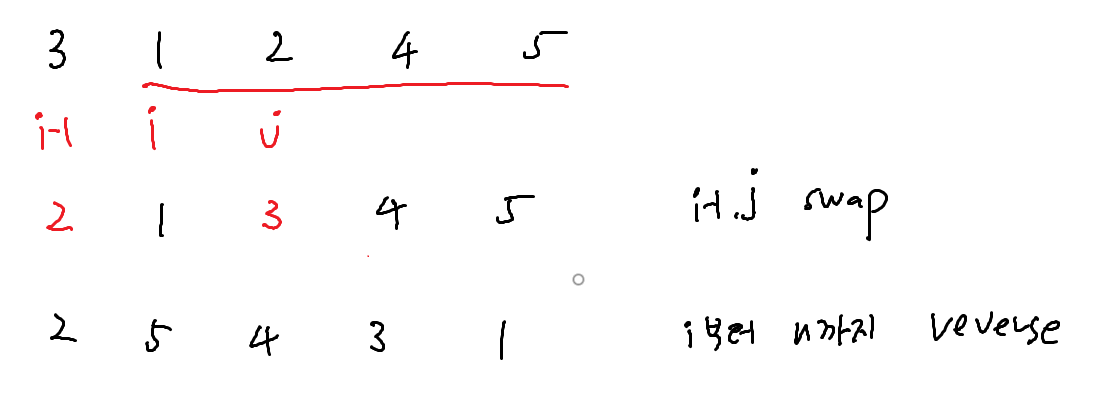 3 1 2 4 5
i-1 i j
2 1 3 4 5 i-1, j swap
2 5 4 3 1 i부터 n까지 reverse